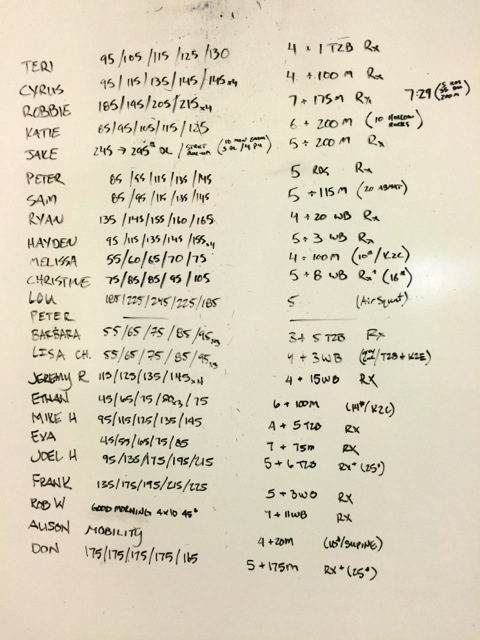 TERI 95/105/115/125/130 4 + 1 T2B Rx
CYRUS 95/115/135/145/145x4 4 + 100 M Rx
ROBBIE 185/195/205/215x4 7 + 175M Rx 7:29
KATIE 85/95/105/115/135 6 + 200 M (10 HOLLOW ROCKS)
JAKE 245 → 295# DL / 5 + 200 M Rx
PETER 85/95/115/135/145 5 RDS Rx
SAM 85/95/115/135/145 5 + 115M (20 ABMAT)
RYAN 135/145/155/160/165 4 + 20 WB Rx
HAYDEN 95/115/135/145/155x4 5 + 3 WB Rx
MELISSA 55/60/65/70/75 4 + 100M (10#/K2C)
CHRISTINE 75/85/85/95/105 5 + 8 WB Rx+ (16#)
LOU 185/225/245/225/185 5 (Air Squat)
PETER
BARBARA 55/65/75/85/95x3 3 + 5 T2B Rx
LISA CH. 55/65/75/85/95x3 4 + 3 WB (T2B + K2E)
JEREMY R 115/125/135/145x4 4 + 15WB RX
ETHAN 45/65/75/80x3/75 6 + 100M (14#/K2C)
MIKE H 95/115/125/135/145 4 + 5 T2B RX
EVA 45/55/65/75/85 7 + 75M RX
JOEL H 95/135/175/195/215 5 + 6 T2B RX+ (25#)
FRANK 135/175/195/215/225 5 + 3 WB RX
ROB W GOOD MORNING 4x10 45# 7 + 11WB RX
ALISON MOBILITY 4 + 20M (10#/SUPINE)
DON 175/175/175/175/165 5 + 175M RX+ (25#)